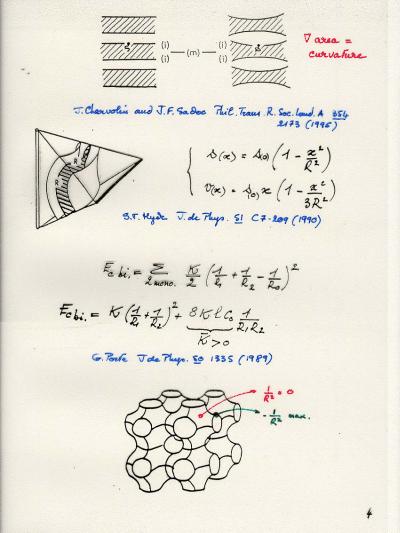 (i) (i)
(m)
(i) (i)
∇ area =
curvature
J. Charvolin and J.F. Sadoc Phil. Trans. R. Soc. Lond. A 354
2173 (1996)
R
R
s(x) = s(0) (1 - x²/R²)
v(x) = s(0) x (1 - x²/3R²)
S.T. Hyde J. de Phys. 51 C7-209 (1990)
Fc bi. = Σ 2 mono. K/2 (1/R1 + 1/R2 - 1/R0)²
Fc bi. = K (1/R1 + 1/R2)² + 8Klc0 1/R1R2
K̄ > 0
G. Porte J de Phys. 50 1335 (1989)
1/R² = 0
- 1/R² max.
4